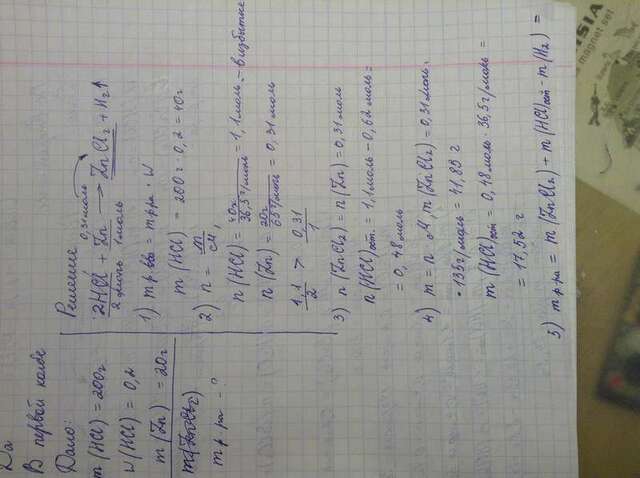 Да
В первой колбе
Дано:
m (HCl) = 200г
w (HCl) = 0,2
m (Zn) = 20г
m (ZnCl₂)
m р-ра - ?
Решение
0,31моль
2HCl + Zn → ZnCl₂ + H₂↑
2 моль 1моль
1) m р.вва = m р-ра · w
m (HCl) = 200г · 0,2 = 40г
2) n = m/M,
n (HCl) = 40г/36,5г/моль = 1,1моль. - в избытке
n (Zn) = 20г/65г/моль = 0,31 моль
1,1/2 > 0,31/1
3) n (ZnCl₂) = n (Zn) = 0,31моль
n (HCl)ост. = 1,1моль - 0,62 моль =
= 0,48моль
4) m = n M, m (ZnCl₂) = 0,31моль.
· 135г/моль = 41,85 г
m (HCl)ост = 0,48моль · 36,5г/моль =
= 17,52 г
5) m р-ра = m (ZnCl₂) + m (HCl)ост - m (H₂) =
SIA
magnet set